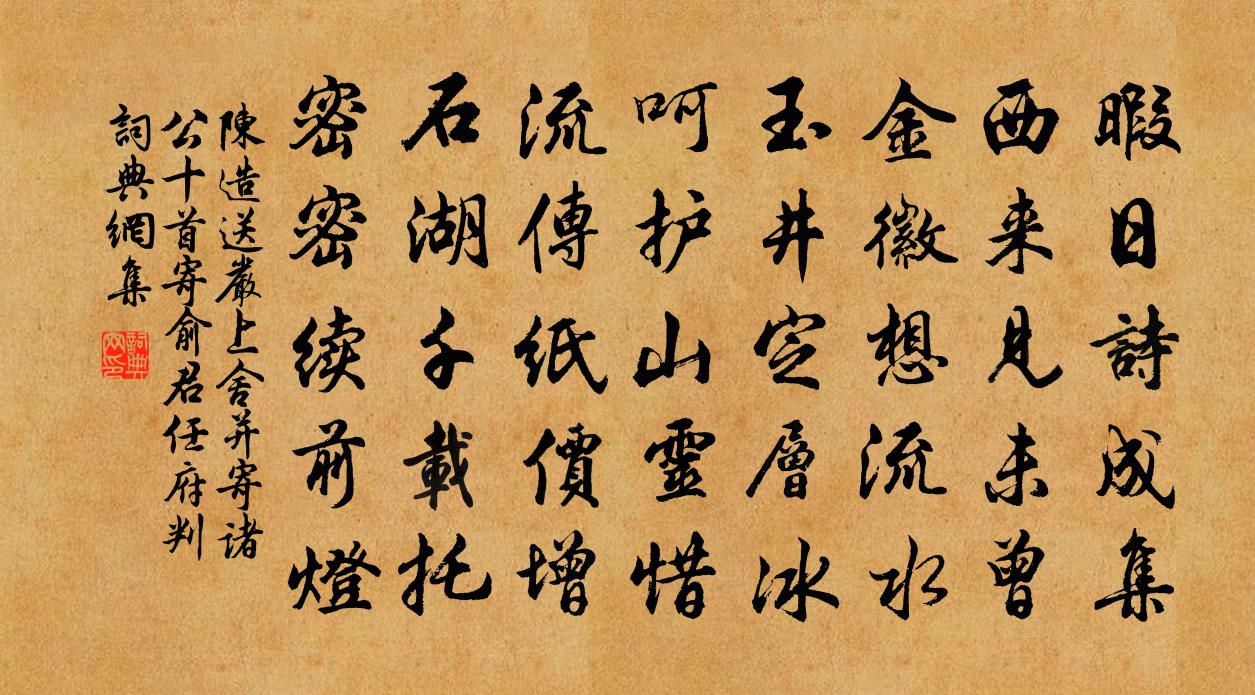 暇日詩成集
西来見未曾
金徽想流水
玉井定層冰
呵护山靈惜
流傳紙價增
石湖千載托
密密续前燈
陳造送嚴上舍并寄諸
公十首寄俞君任府判
詞典網集
詞典网印